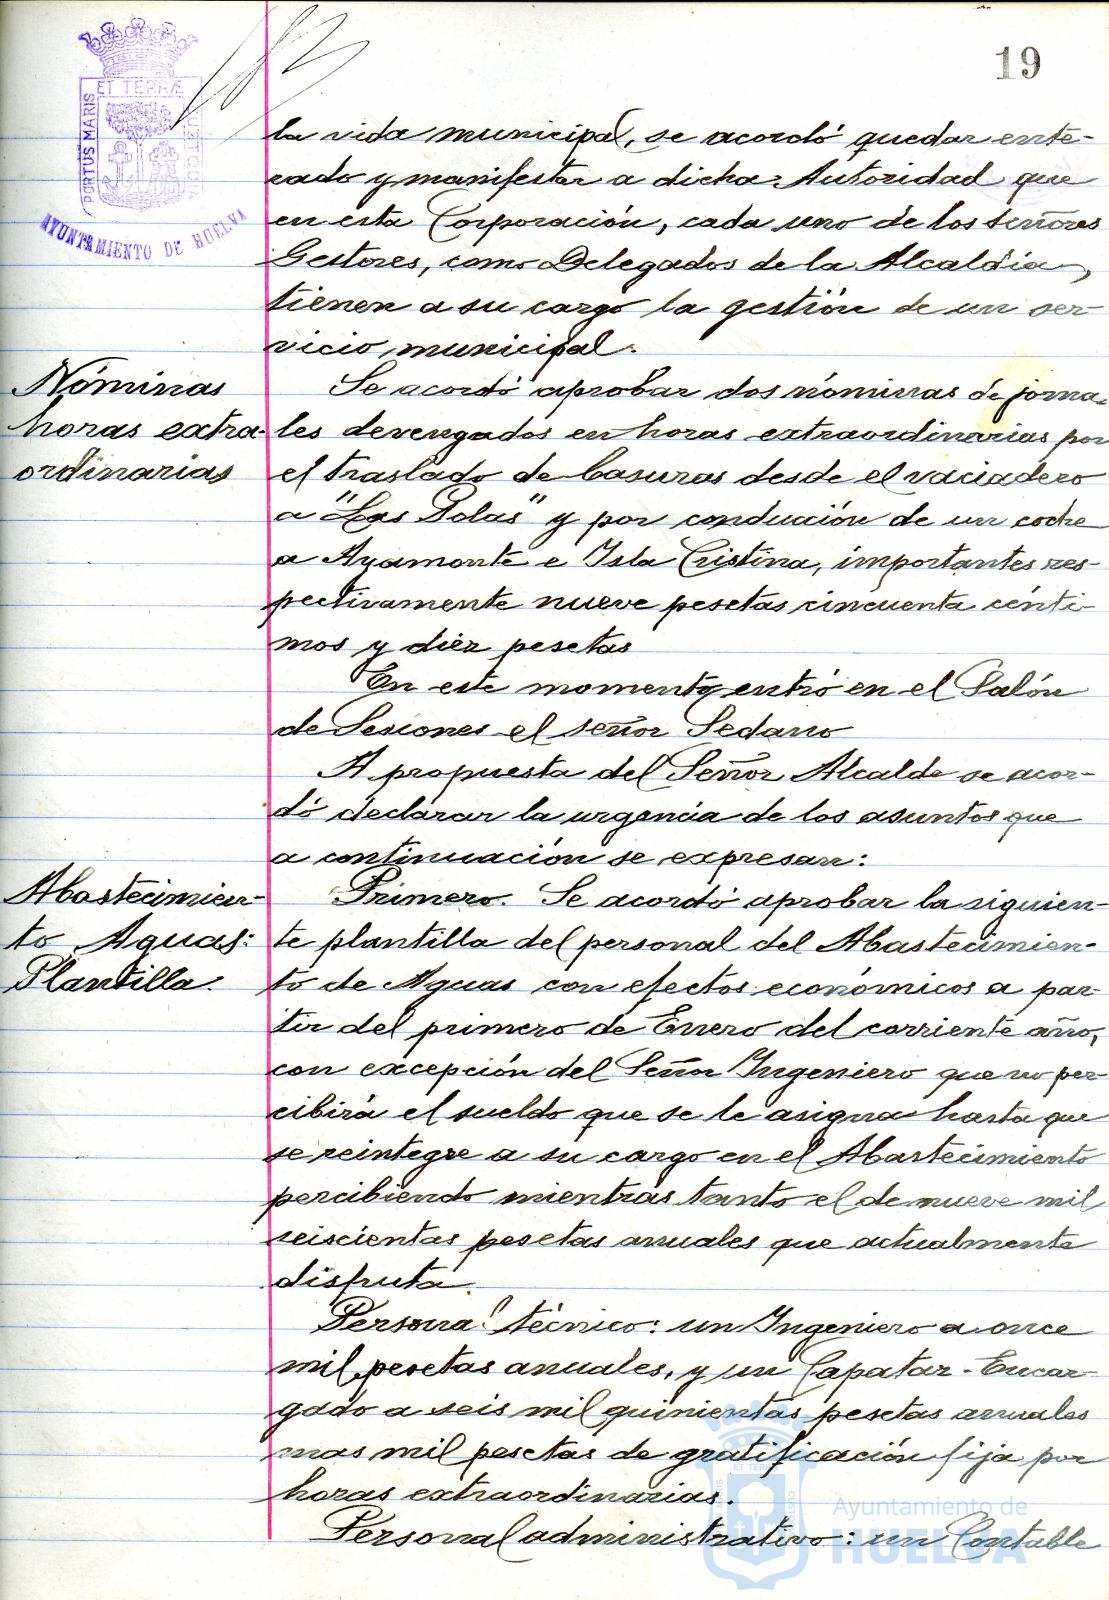 19
PORTUS MARIS
ET TERRÆ
AYUNTAMIENTO DE HUELVA
la vida municipal, se acordó quedar ente-
rado y manifestar a dicha Autoridad que
en esta Corporación, cada uno de los señores
Gestores, como Delegados de la Alcaldía,
tienen a su cargo la gestión de un ser-
vicio municipal.
Nóminas
horas extra-
ordinarias
Se acordó aprobar dos nóminas de jorna-
les devengados en horas extraordinarias por
el traslado de basuras desde el vaciadero
a "Las Polas" y por conducción de un coche
a Ayamonte e Isla Cristina, importantes res-
pectivamente nueve pesetas cincuenta cénti-
mos y diez pesetas
En este momento entró en el Salón
de Sesiones el señor Sedano
A propuesta del Señor Alcalde se acor-
dó declarar la urgencia de los asuntos que
a continuación se expresan:
Abastecimien-
to Aguas:
Plantilla.
Primero. Se acordó aprobar la siguien-
te plantilla del personal del Abastecimien-
to de Aguas con efectos económicos a par-
tir del primero de Enero del corriente año,
con excepción del Señor Ingeniero que no per-
cibirá el sueldo que se le asigna hasta que
se reintegre a su cargo en el Abastecimiento
percibiendo mientras tanto el de nueve mil
seiscientas pesetas anuales que actualmente
disfruta.
Personal técnico: un Ingeniero a once
mil pesetas anuales, y un Capataz-Encar-
gado a seis mil quinientas pesetas anuales
mas mil pesetas de gratificación fija por
horas extraordinarias.
Personal administrativo: un Contable
Ayuntamiento de
HUELVA